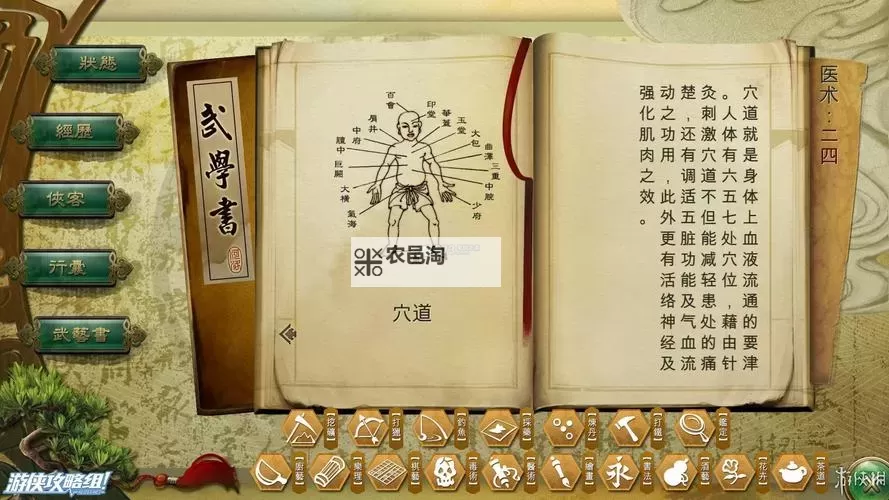 狀態
經歷
俠客
行囊
武藝書
武學書
百會
印堂
華蓋
玉堂
大包
曲澤
三重
中脘
少府
肩井
中府
膻中
巨闕
大橫
氣海
农邑淘
穴道
医术：二四
穴道就是身体上血液流通的要津
。人体有六五七处穴位，藉由针
灸刺激穴道不但能减轻患处的痛
楚，还有调适五脏功能及气血流
动之功用，此外更有活络神经及
强化肌肉之效。
【挖礦】
【打獵】
【釣魚】
【採藥】
【煉丹】
【打鐵】
【鑑定】
【廚藝】
【樂理】
【棋藝】
【毒術】
【醫術】
【繪畫】
永
【書法】
【酒藝】
【花卉】
【茶道】
游侠攻略组!
游侠网